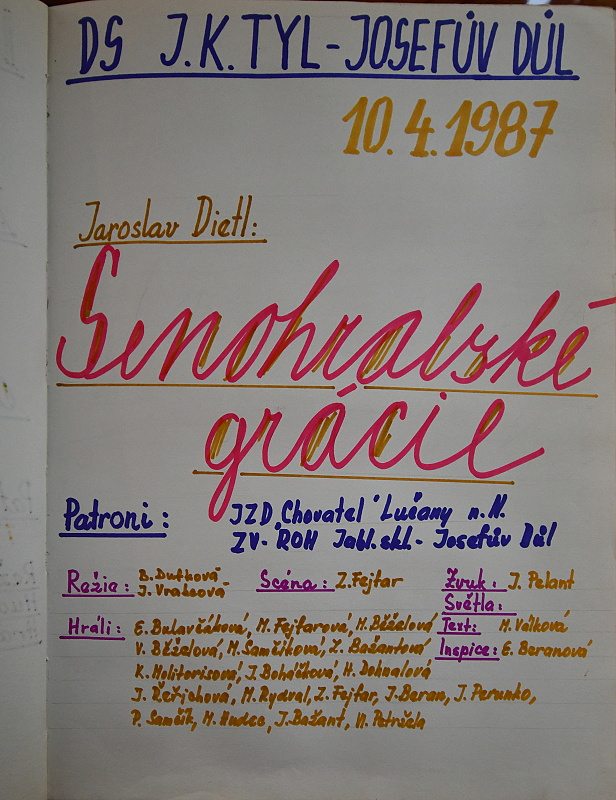 DS J.K. TYL - JOSEFŮV DŮL
10.4.1987
Jaroslav Dietl:
Senohrabské
grácie
Patroni: JZD „Chovatel" Lučany n.N.
ZV- ROH Jabl.skl.- Josefův Důl
Režie: B. Dutková Scéna: Z. Fejfar Zvuk: J. Pelant
J. Vrabcová Světla:
Hráli: E. Bulavčáková, M. Fejfarová, M. Běžalová Text: M. Válková
V. Běžalová, M. Samčíková, Z. Bažantová Inspice: E. Beranová
K. Molitorisová, J. Boháčková, H. Dohnalová
J. Řeřichová, M. Rydval, Z. Fejfar, J. Beran, J. Perunko,
P. Samčík, M. Hudec, J. Bažant, Vl. Petržela